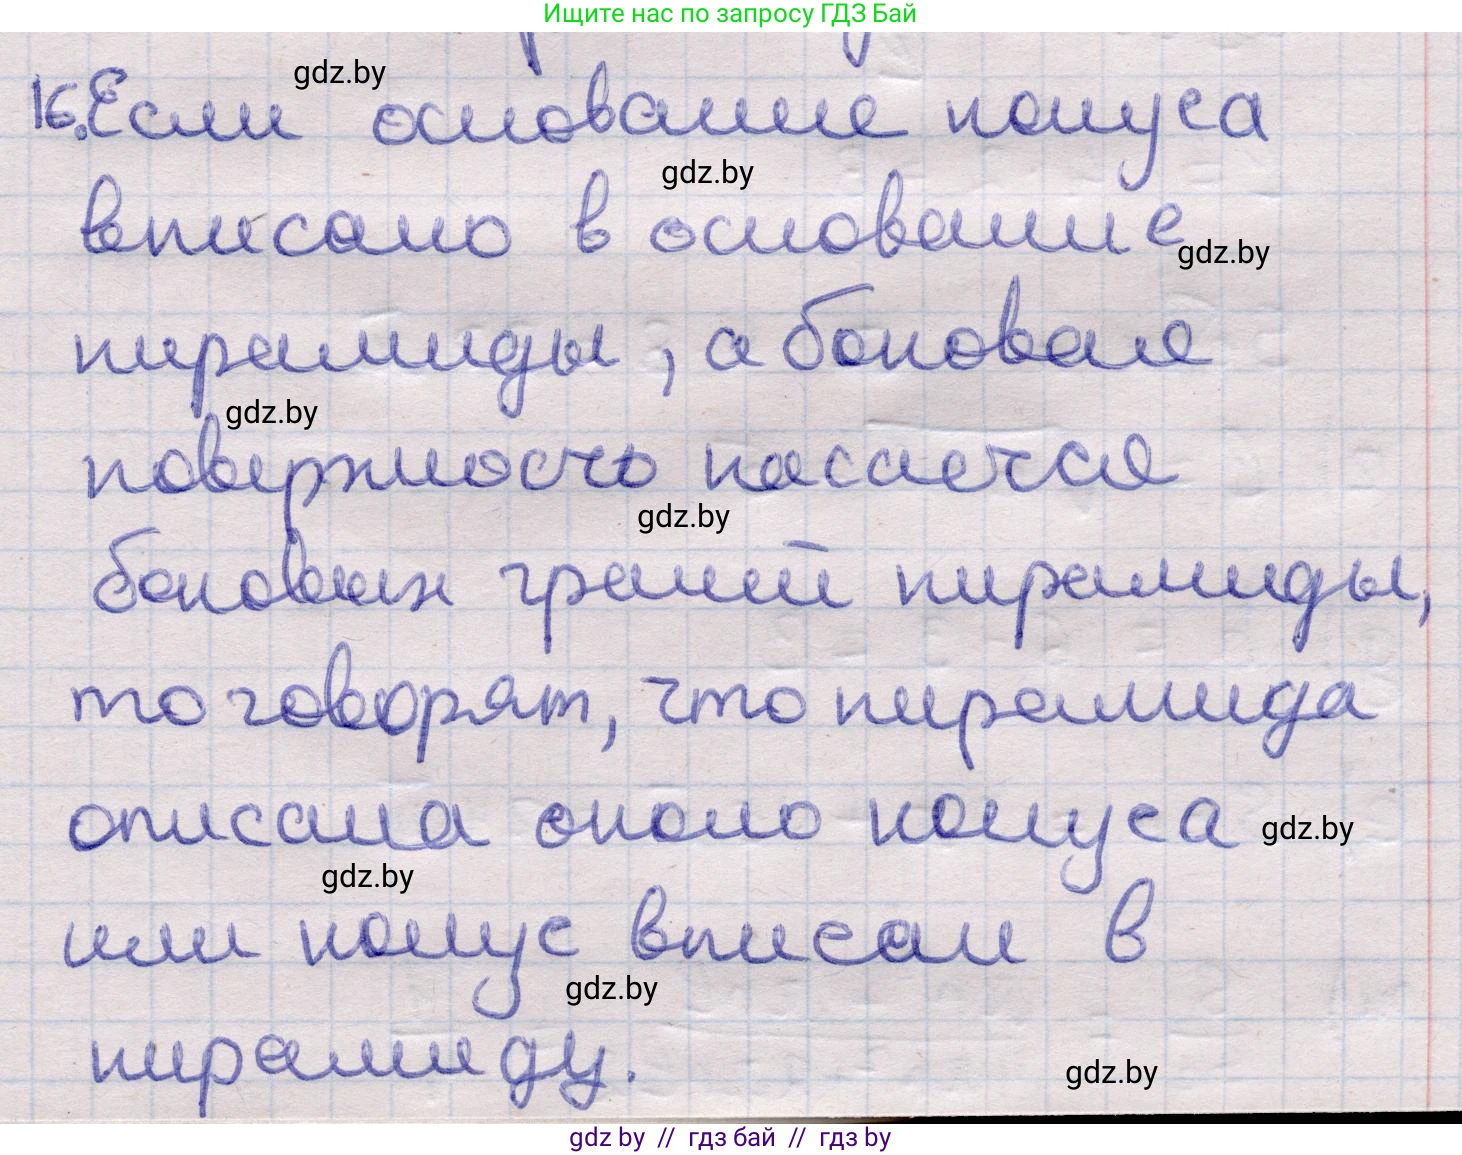 Ищите нас по запросу ГДЗ Бай
gdz.by
16. Если основание конуса
gdz.by
вписано в основание
gdz.by
пирамиды, а боковая
gdz.by
поверхность касается
gdz.by
боковых граней пирамиды,
то говорят, что пирамида
описана около конуса
gdz.by
gdz.by
или конус вписан в
gdz.by
пирамиду.
gdz.by
gdz by // гдз бай // гдз by